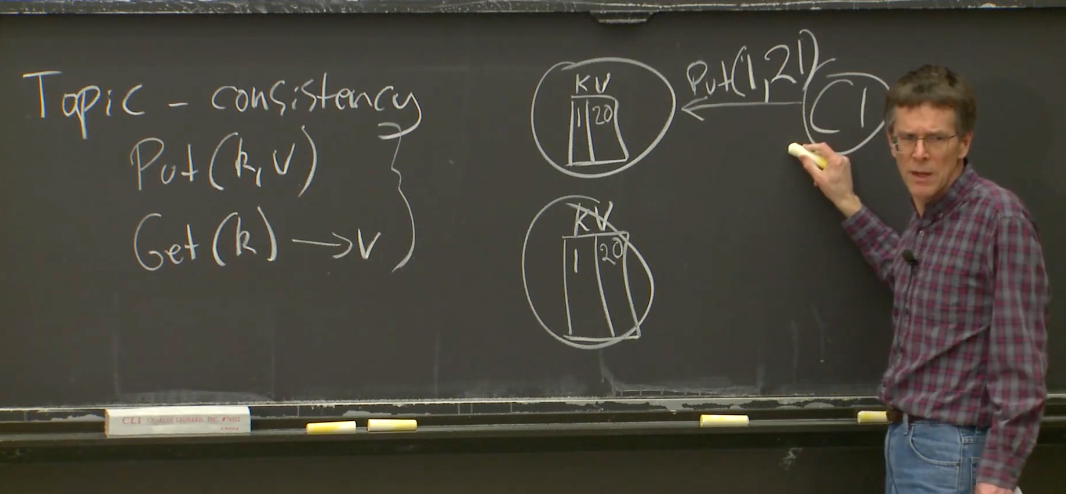 Topic - consistency
Put(k,v)
Get(k) → v
K V
1 20
Put(1,21)
C1
K V
1 20